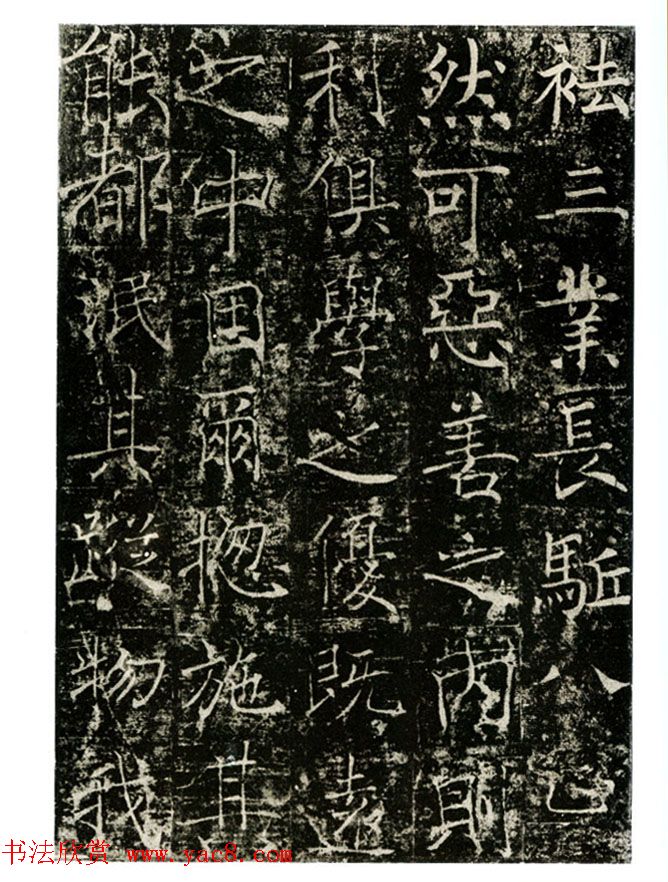 祛三業長駈八正
然可惡善之兩則
利俱學之優既遠
之中因爾揔施其
能都泯其蹤物我
书法欣赏 www.yac8.com